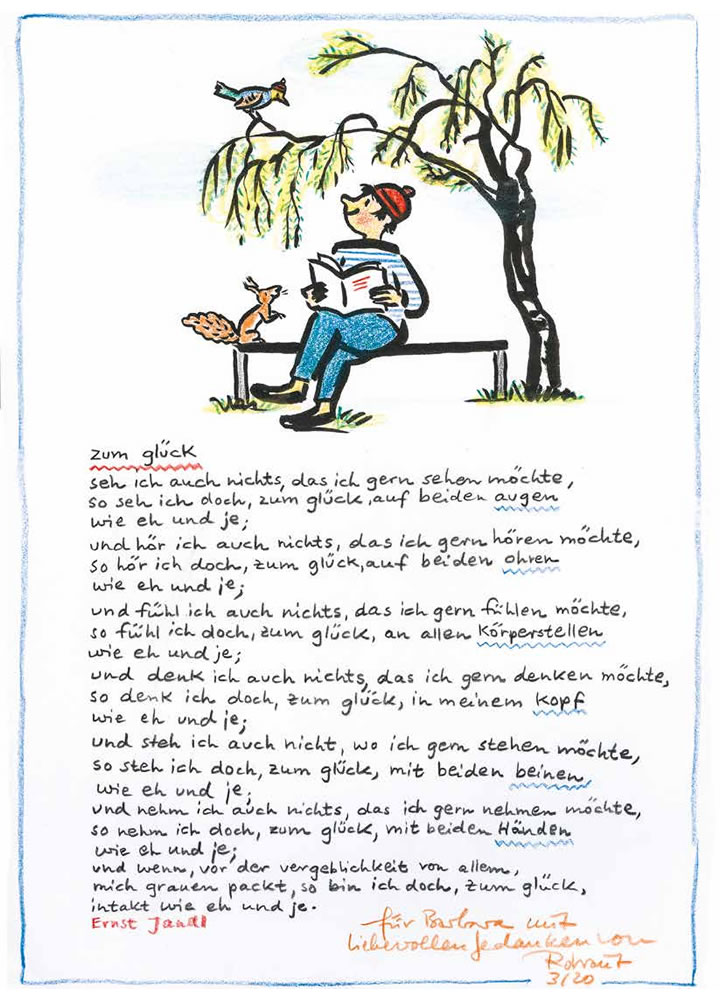 zum glück
seh ich auch nichts, das ich gern sehen möchte,
so seh ich doch, zum glück, auf beiden augen
wie eh und je;
und hör ich auch nichts, das ich gern hören möchte,
so hör ich doch, zum glück, auf beiden ohren
wie eh und je;
und fühl ich auch nichts, das ich gern fühlen möchte,
so fühl ich doch, zum glück, an allen körperstellen
wie eh und je;
und denk ich auch nichts, das ich gern denken möchte,
so denk ich doch, zum glück, in meinem kopf
wie eh und je;
und steh ich auch nicht, wo ich gern stehen möchte,
so steh ich doch, zum glück, mit beiden beinen,
wie eh und je;
und nehm ich auch nichts, das ich gern nehmen möchte,
so nehm ich doch, zum glück, mit beiden Händen
wie eh und je;
und wenn, vor der vergeblichkeit von allem,
mich grauen packt, so bin ich doch, zum glück,
intakt wie eh und je.
Ernst Jandl
für Barbara mit
liebevollen Gedanken von
Rotraut
3/20